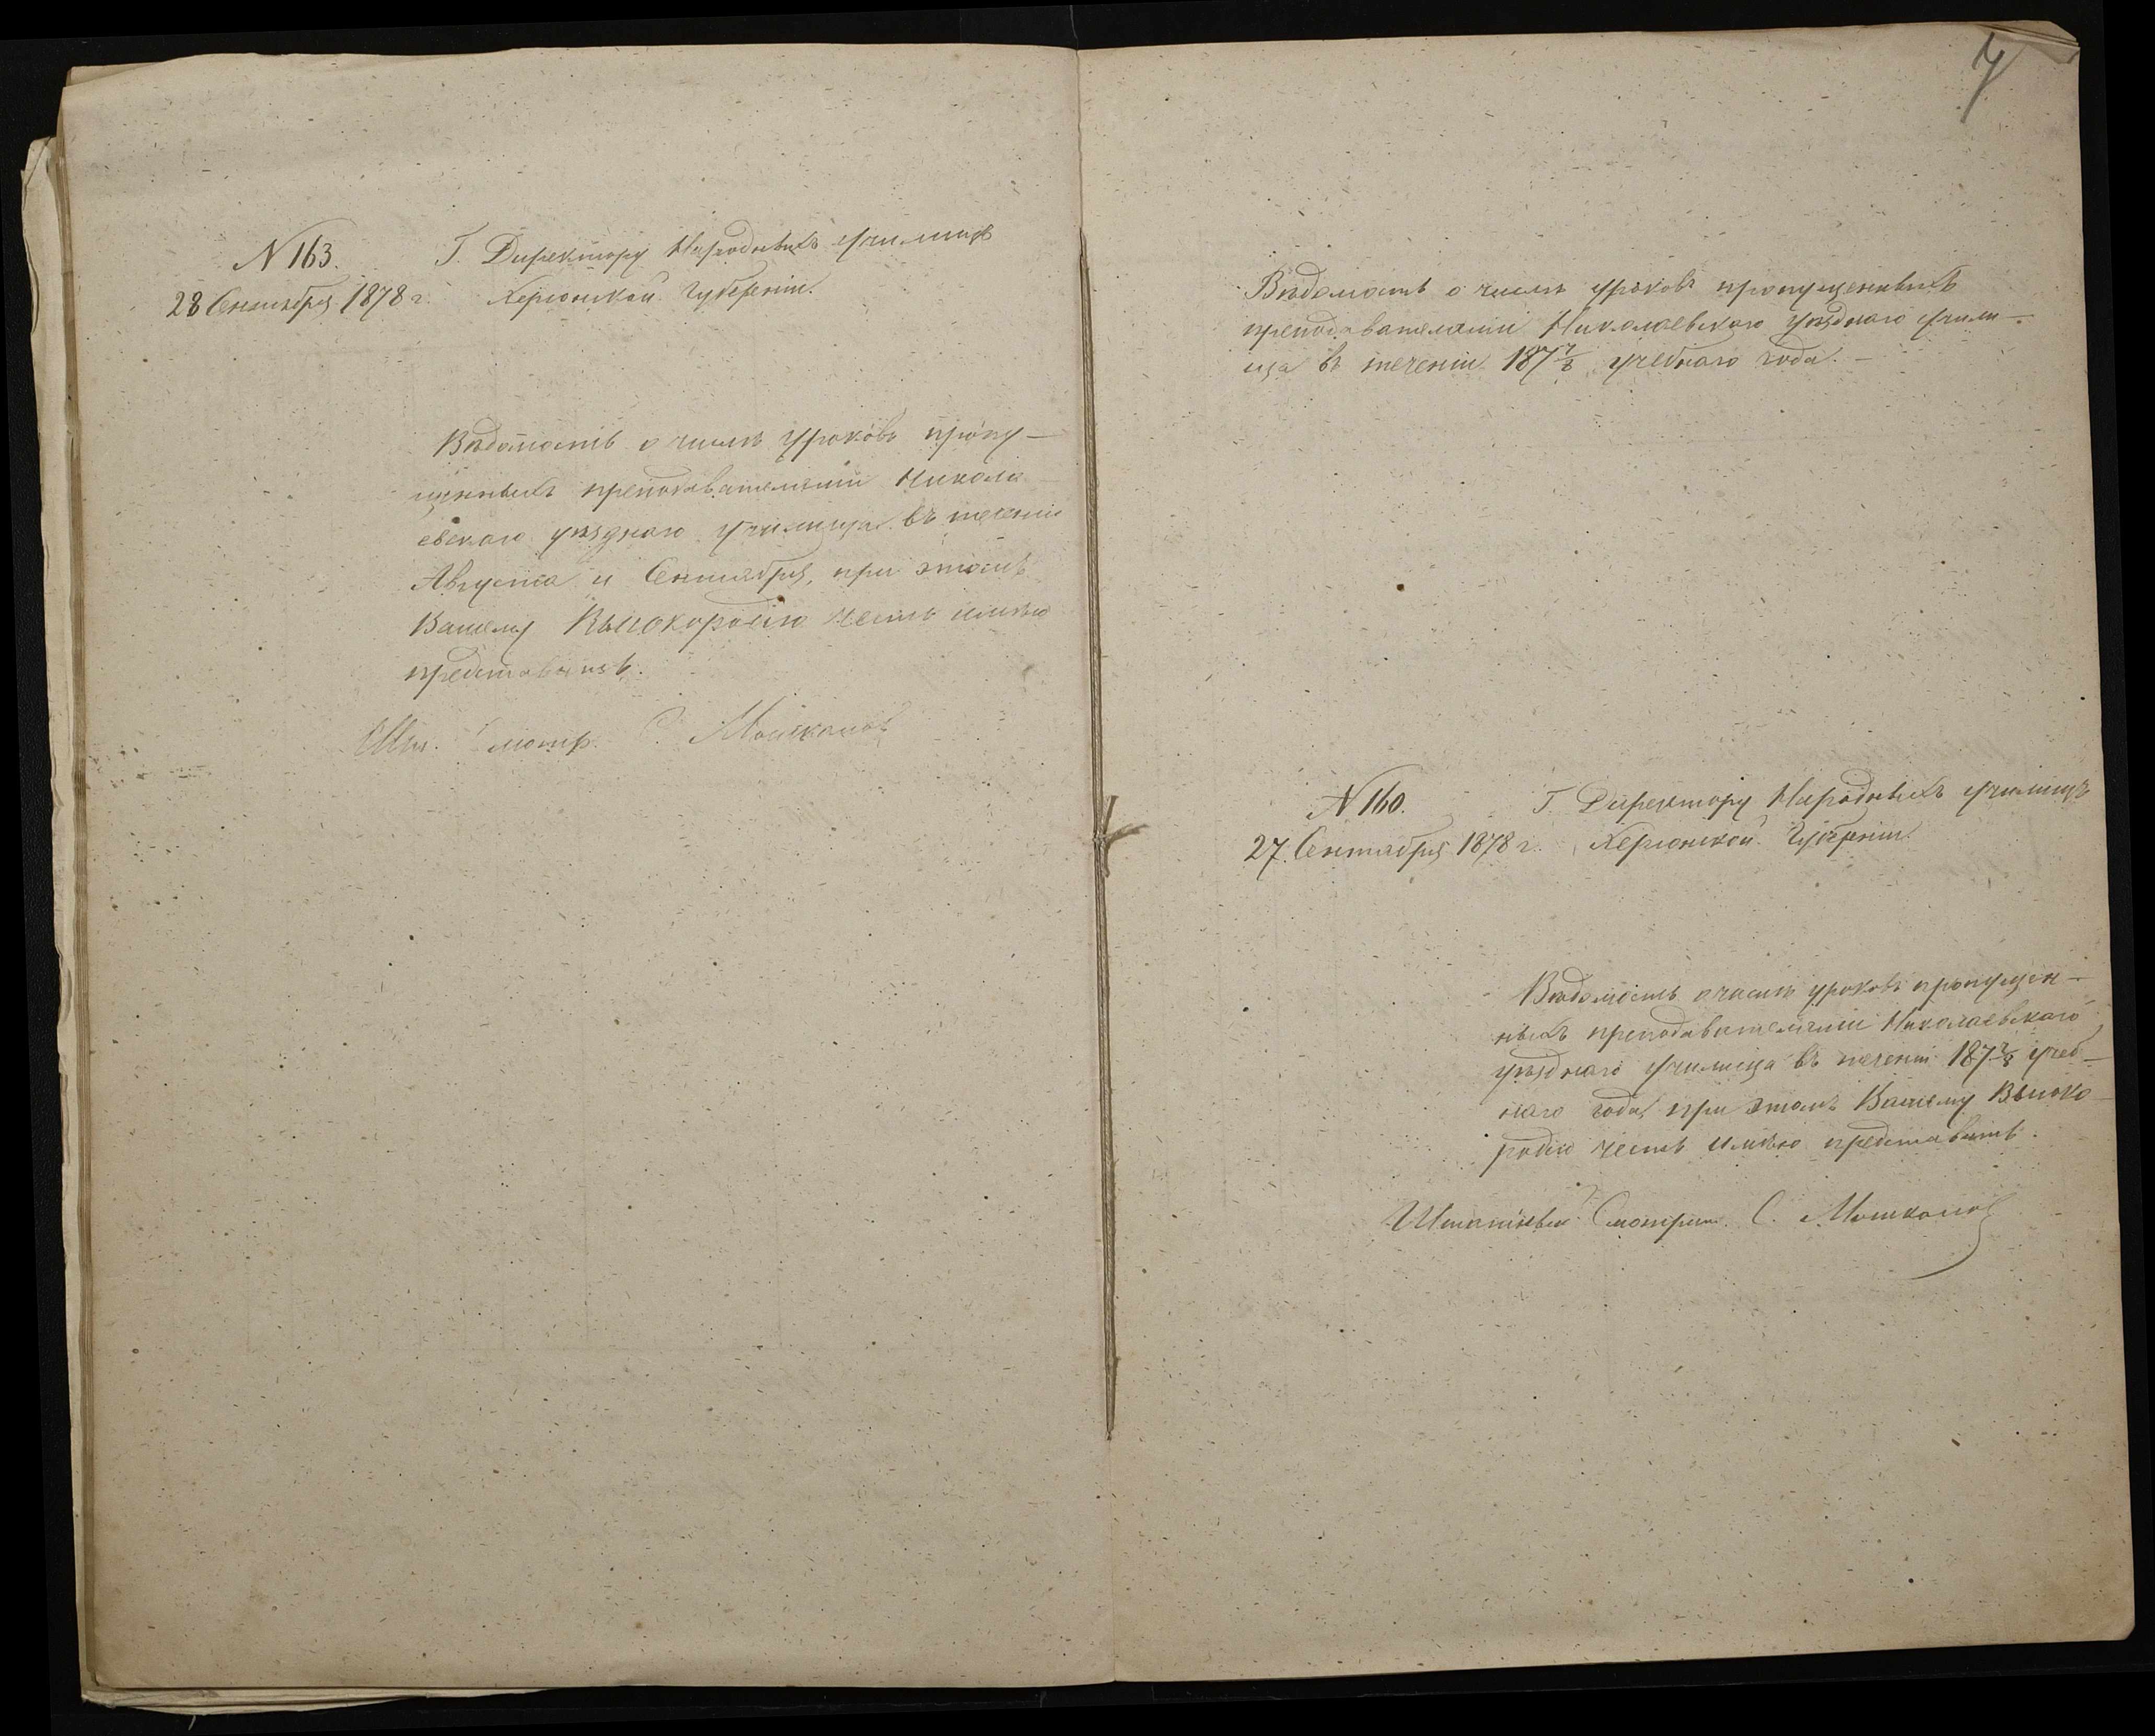 N 163. Г. Директору Народныхъ училищъ
28 Сентября 1878 г. Херсонской Губерніи.
Вѣдомость о числѣ уроковъ пропу-
щенныхъ преподавателями Никола
евскаго уѣзднаго училища въ теченіи
Августа и Сентября, при этомъ
Вашему Высокородію честь имѣю
представить.
Шт. Смотр. С.
7
Вѣдомость о числѣ уроковъ пропущенныхъ
преподавателями Николаевскаго уѣзднаго учили-
ща въ теченіи 187 7/8 учебнаго года. -
N 160. Г. Директору Народныхъ училищъ
27 Сентября 1878 г. Херсонской Губерніи.
Вѣдомость о числѣ уроковъ пропущен-
ныхъ преподавателями Николаевскаго
уѣзднаго училища въ теченіи 187 7/8 учеб-
наго года, при этомъ Вашему Высоко
родію честь имѣю представить.
Штатный Смотрит. С.